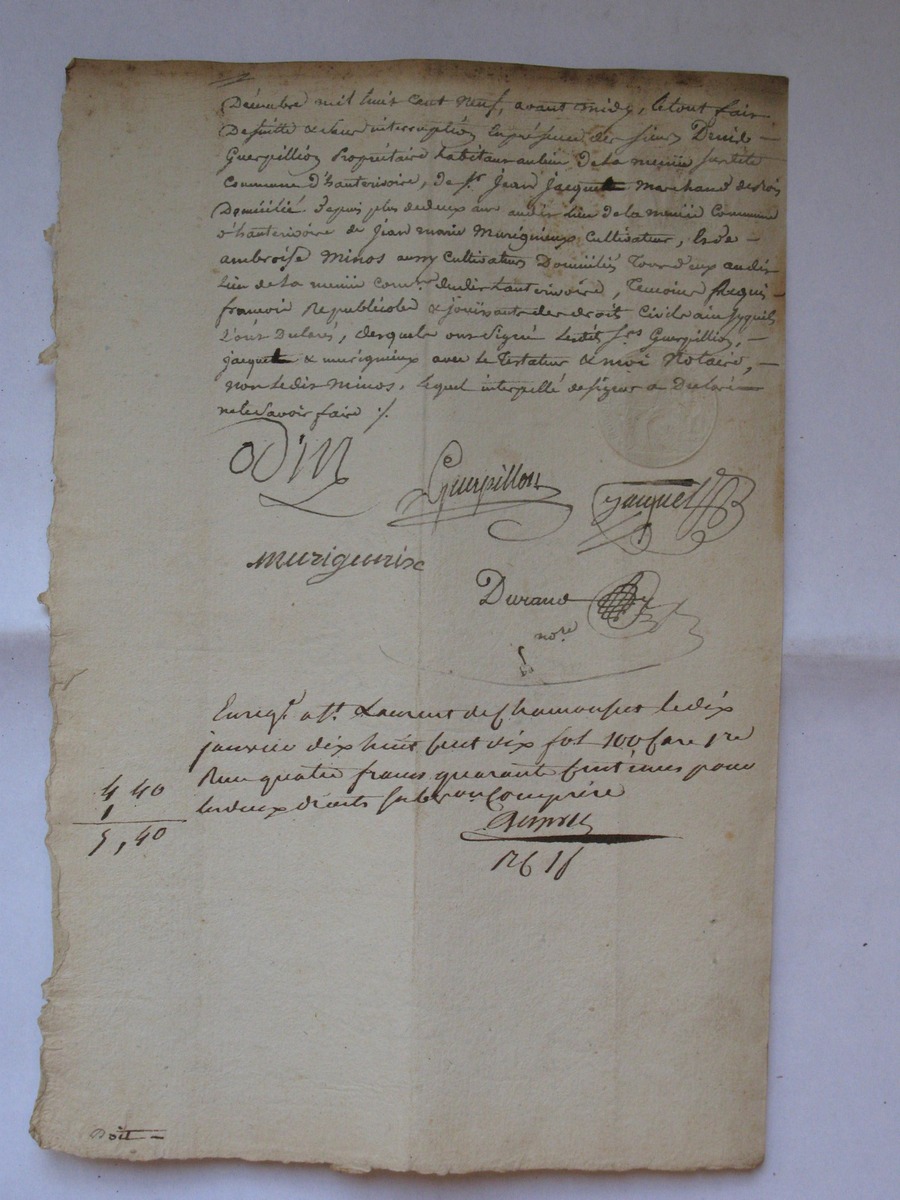 Décembre mil huit cent neuf, avant midy, le tout fait
De suitte & sans interruption En présence des sieurs Denis
Guerpillion Propriétaire habitant au lieu de la
Commune d'hauterivoire, de sr. Jean Jacquet Marchand de
Domicilié Depuis plus de deux ans audit lieu de la Commune
d'hauterivoire de Jean marie Murigneux Cultivateur, &
ambroise Minos aussy Cultivateur Domiciliés Tous deux audit
lieu de la Comne dudit hauterivoire, Temoins Requis
francois Republicoles & jouissants des droits Civils ainsy quils
L'ont Déclaré, desquels ont signé Lesdits srs Guerpillion,
jacquet & murigneux avec le Testateur & moi Notaire,
non ledit Minos, lequel interpellé de signer a Déclaré
ne le savoir faire ./.
Guerpillon
Jaquet
murigneux
Durand
nore
Enregt. a St. Laurent de Chamousset le dix
janvier dix huit cent dix fol 100 case 1re
Reçu quatre francs quarante centimes pour
les deux droits subvon Comprise
4 40
1
5,40
Doit